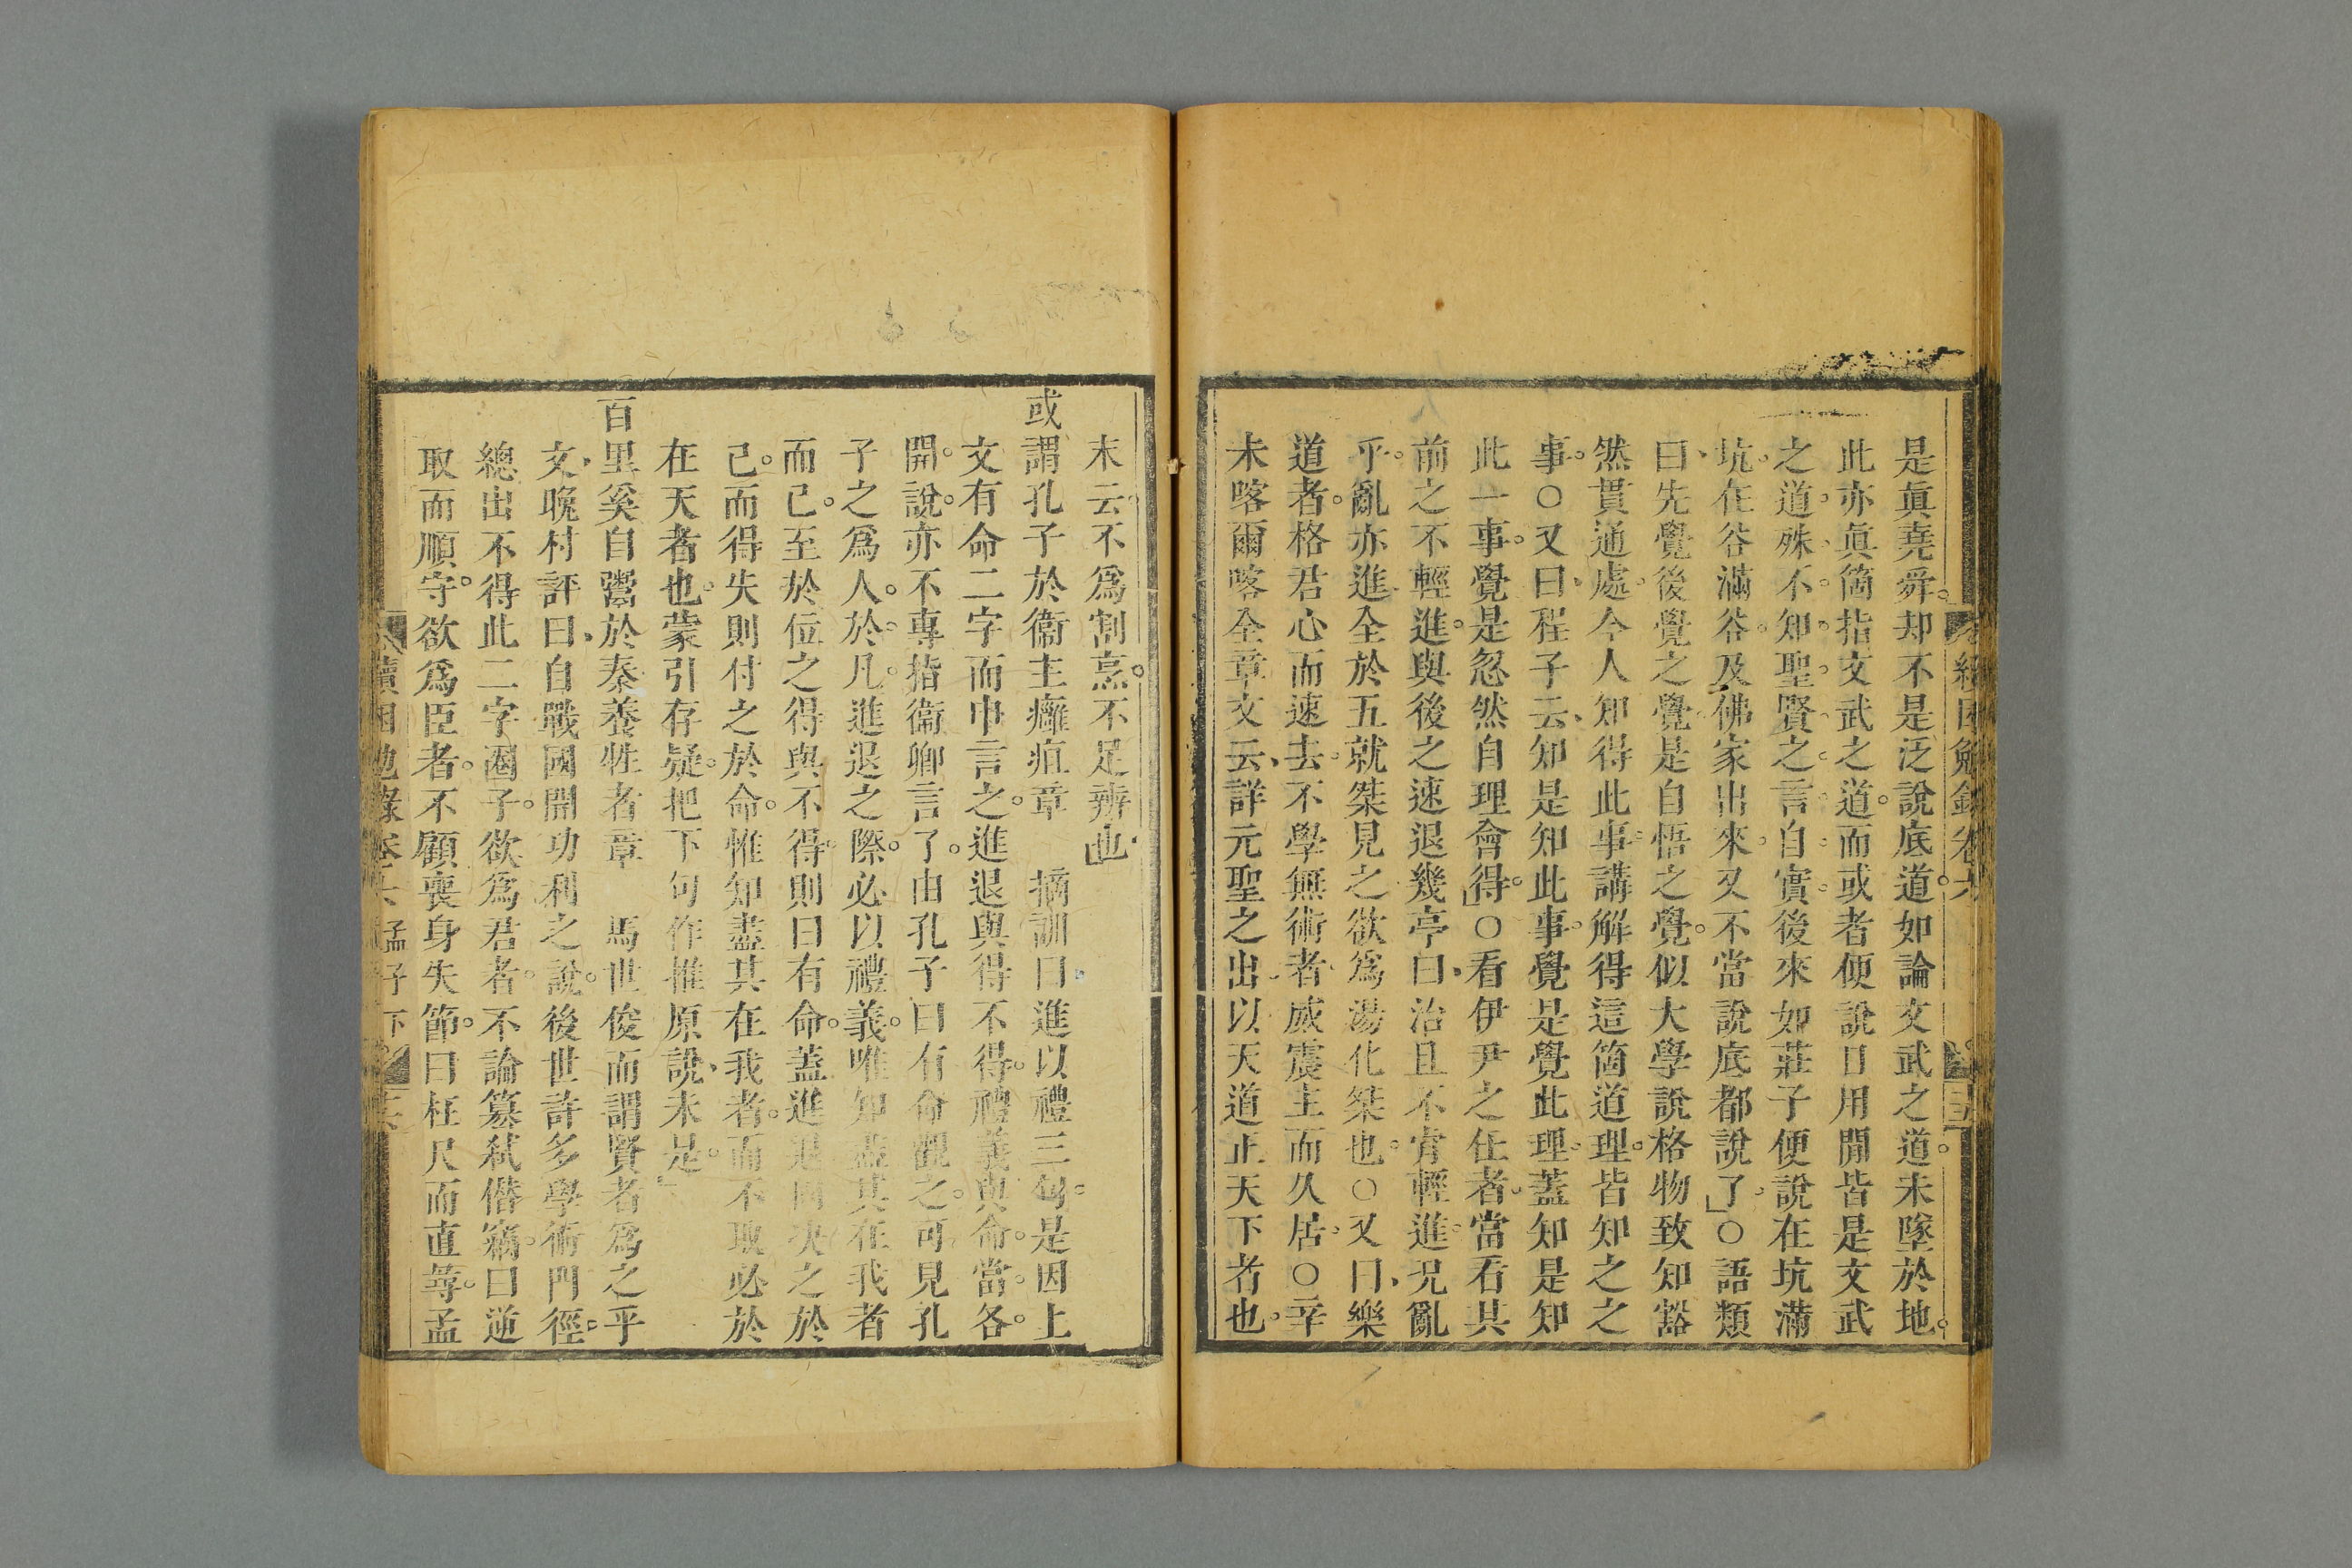 是眞堯舜却不是泛說底道如論文武之道未墜於地
此亦眞箇指文武之道而或者便說日用閒皆是文武
之道殊不知聖賢之言自實後來如莊子便說在坑滿
坑在谷滿谷及佛家出來又不當說底都說了○語類
曰先覺後覺之覺是自悟之覺似大學說格物致知豁
然貫通處今人知得此事講解得這箇道理皆知之之
事○又曰程子云知是知此事覺是覺此理蓋知是知
此一事覺是忽然自理會得○看伊尹之任者當看其
前之不輕進與後之速退幾亭曰治且不肯輕進況亂
乎亂亦進全於五就桀見之欲爲湯化桀也○又曰樂
道者格君心而速去不學無術者威震主而久居○辛
未喀爾喀全章文云詳元聖之出以天道正天下者也
末云不爲割烹不足辨也
或謂孔子於衞主癰疽章 摘訓曰進以禮三句是因上
文有命二字而申言之進退與得不得禮義與命當各
開說亦不專指衞卿言了由孔子曰有命觀之可見孔
子之爲人於凡進退之際必以禮義唯知盡其在我者
而已至於位之得與不得則曰有命蓋進退固決之於
己而得失則付之於命惟知盡其在我者而不取必於
在天者也蒙引存疑把下句作推原說未是
百里奚自鬻於秦養牲者章 馬世俊而謂賢者爲之乎
文晚村評曰自戰國開功利之說後世許多學術門徑
總出不得此二字圈子欲爲君者不論篡弒僭竊曰逆
取而順守欲爲臣者不顧喪身失節曰枉尺而直尋孟
孟子下